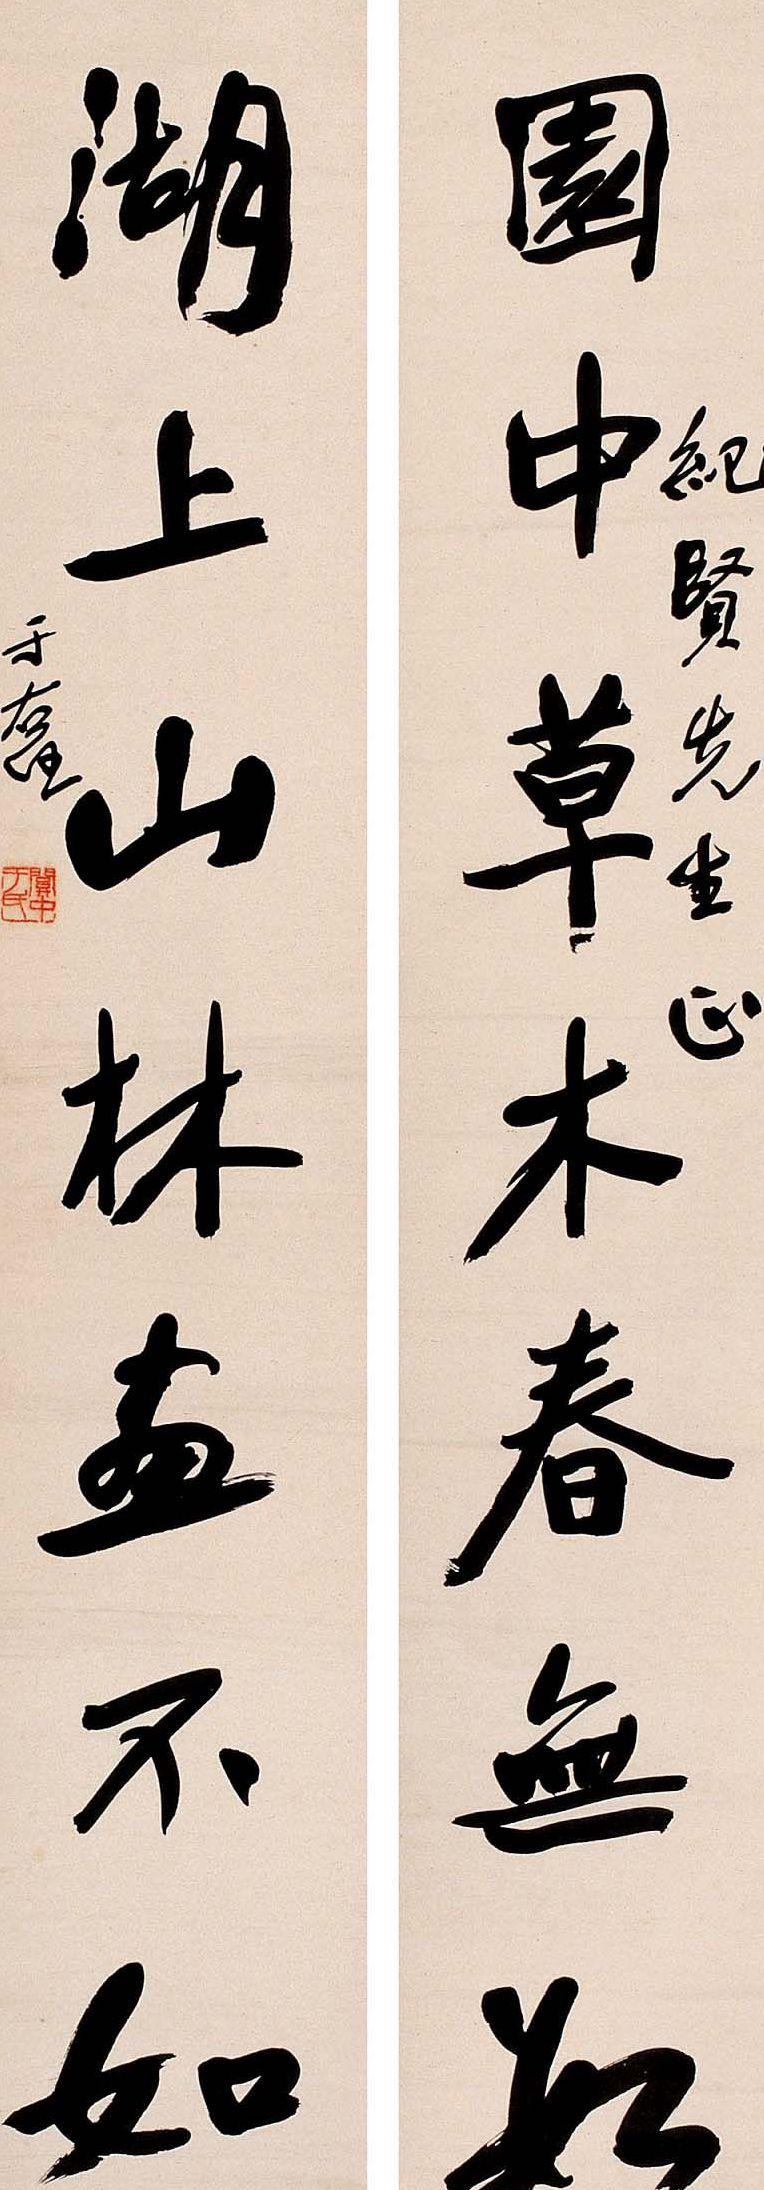 紀賢先生正
園中草木春無數
湖上山林畫不如
于右任
關中于氏